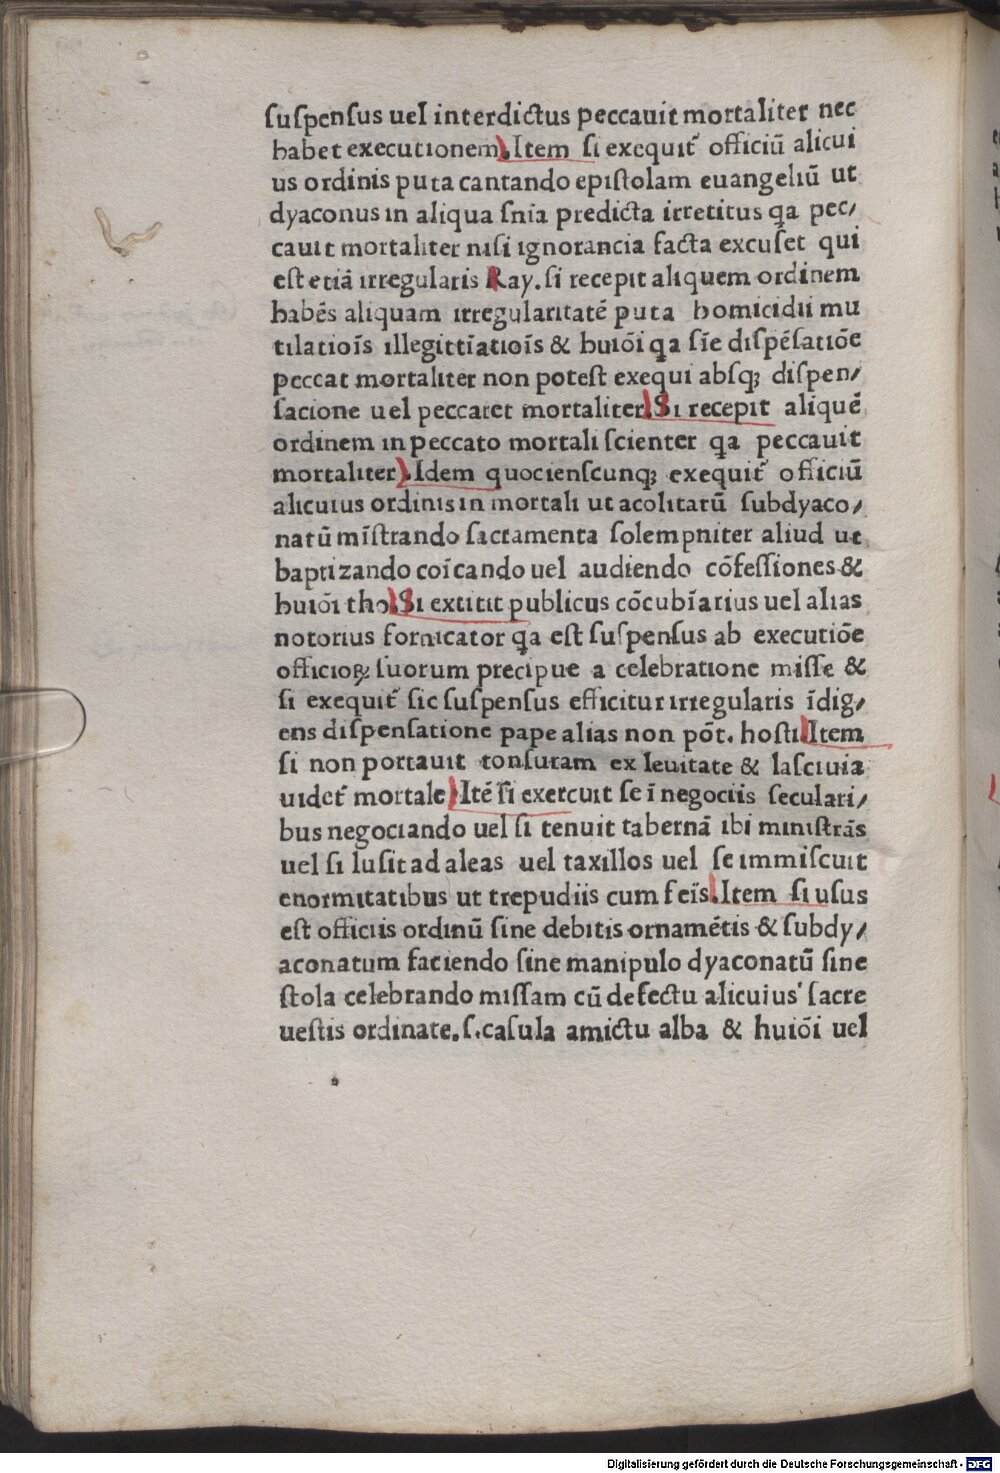 ſuſpenſus uel interdictus peccauit mortaliter nec
habet executionem. Item ſi exequit᷑ officiū alicui
us ordinis puta cantando epiſtolam euangeliū ut
dyaconus in aliqua ſnīa predicta irretitus q̄a pec/
cauit mortaliter niſi ignorancia facta excuſet qui
eſt etiā irregularis Ray. ſi recepit aliquem ordinem
habēs aliquam irregularitatē puta homicidii mu
tilatiōis illegittīatiōis & huiōi q̄a ſīe diſpēſatiōe
peccat mortaliter non poteſt exequi abſqꝫ diſpen/
ſacione uel peccaret mortaliter. Si recepit aliquē
ordinem in peccato mortali ſcienter q̄a peccauit
mortaliter. Idem quocienſcunqꝫ exequit᷑ officiū
alicuius ordinis in mortali ut acolitatū ſubdyaco/
natū mīſtrando ſacramenta ſolempniter aliud ut
baptizando coīcando uel audiendo cōfeſſiones &
huiōi tho. Si extitit publicus cōcubīarius uel alias
notorius fornicator q̄a eſt ſuſpenſus ab executiōe
officioꝝ ſuorum precipue a celebratione miſſe &
ſi exequit᷑ ſic ſuſpenſus efficitur irregularis īdig/
ens diſpenſatione pape alias non pōt. hoſti. Item
ſi non portauit tonſuram ex leuitate & laſciuia
uidet᷑ mortale. Itē ſi exercuit ſe ī negociis ſeculari/
bus negociando uel ſi tenuit tabernā ibi miniſtrās
uel ſi luſit ad aleas uel taxillos uel ſe immiſcuit
enormitatibus ut trepudiis cum feīs. Item ſi uſus
eſt officiis ordinū ſine debitis ornamētis & ſubdy/
aconatum faciendo ſine manipulo dyaconatū ſine
ſtola celebrando miſſam cū defectu alicuius' ſacre
ueſtis ordinate. ſ. caſula amictu alba & huiōi uel
Digitalisierung gefördert durch die Deutsche Forschungsgemeinschaft - DFG